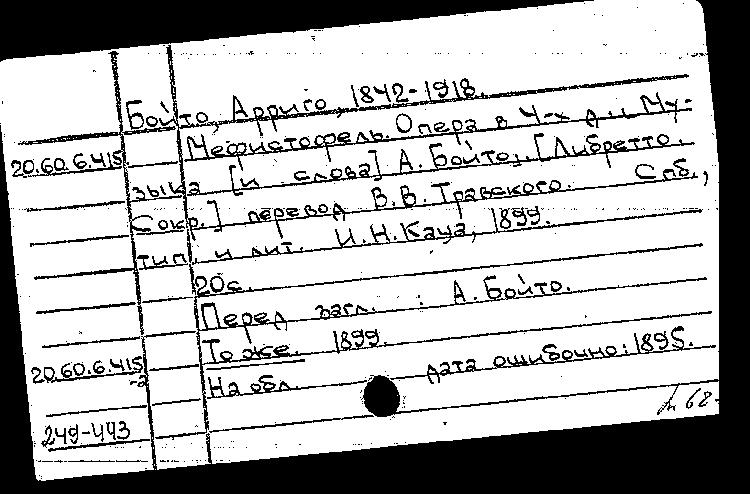 Бойто, Арриго, 1842-1918.
20.60.6.415. Мефистофель. Опера в 4-х д. Му-
зыка [и слова] А. Бойто. [Либретто.
Сокр.] перевод В.В. Травского. Спб.,
тип. и лит. И.Н. Кауа, 1899.
20с.
Перед загл. : А. Бойто.
То же. 1899.
20.60.6.415-2 На обл. дата ошибочно: 1895.
249-443
л 62-